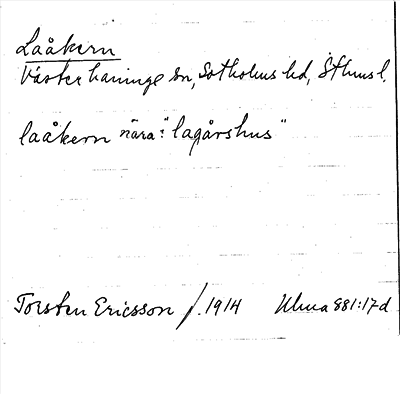 Laåkern
Västerhaninge sn, Sotholms hd, Sthms l.
laåkern nära: "lagårshus"
Torsten Ericsson f. 1914 Ulma 881:17d